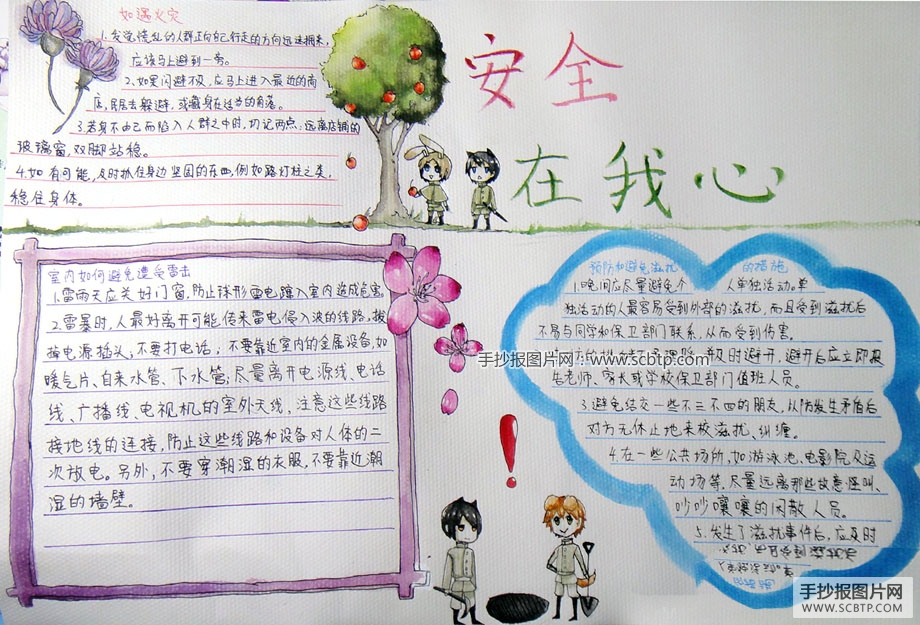 如遇火灾
1.发觉慌乱的人群正向自己行走的方向迅速拥来,
应该马上避到一旁。
2.如果闪避不及,应马上进入最近的商
店,民居去躲避,或藏身在过旁的角落。
3.若身不由己而陷入人群之中时,切记两点:远离店铺的
玻璃窗,双脚站稳。
4.如有可能,及时抓住身边坚固的东西,例如路灯柱之类,
稳住身体。
安全
在我心
室内如何避免遭受雷击
1.雷雨天应关好门窗,防止球形雷电蹿入室内造成危害
2.雷暴时,人最好离开可能传来雷电侵入波的线路,拔
掉电源插头,不要打电话,不要靠近室内的金属设备,如
暖气片、自来水管、下水管;尽量离开电源线、电话
线、广播线、电视机的室外天线,注意这些线路
接地线的连接,防止这些线路和设备对人体的二
次放电。另外,不要穿潮湿的衣服,不要靠近潮
湿的墙壁。
预防和避免滋扰的措施
1.晚间应尽量避免个人单独活动。单
独活动的人最容易受到外部的滋扰,而且受到滋扰后
不易与同学和保卫部门联系,从而受到伤害。
及时避开,避开后应立即报
告老师、家长或学校保卫部门值班人员。
3.避免结交一些不三不四的朋友,从防发生矛盾后
对方无休止地来校滋扰、纠缠。
4.在一些公共场所,如游泳池、电影院及运
动场等,尽量远离那些故意怪叫、
吵吵嚷嚷的闲散人员。
5.发生了滋扰事件后,应及时
手抄报图片网:www.scbtp.com
手抄报图片网
WWW.SCBTP.COM